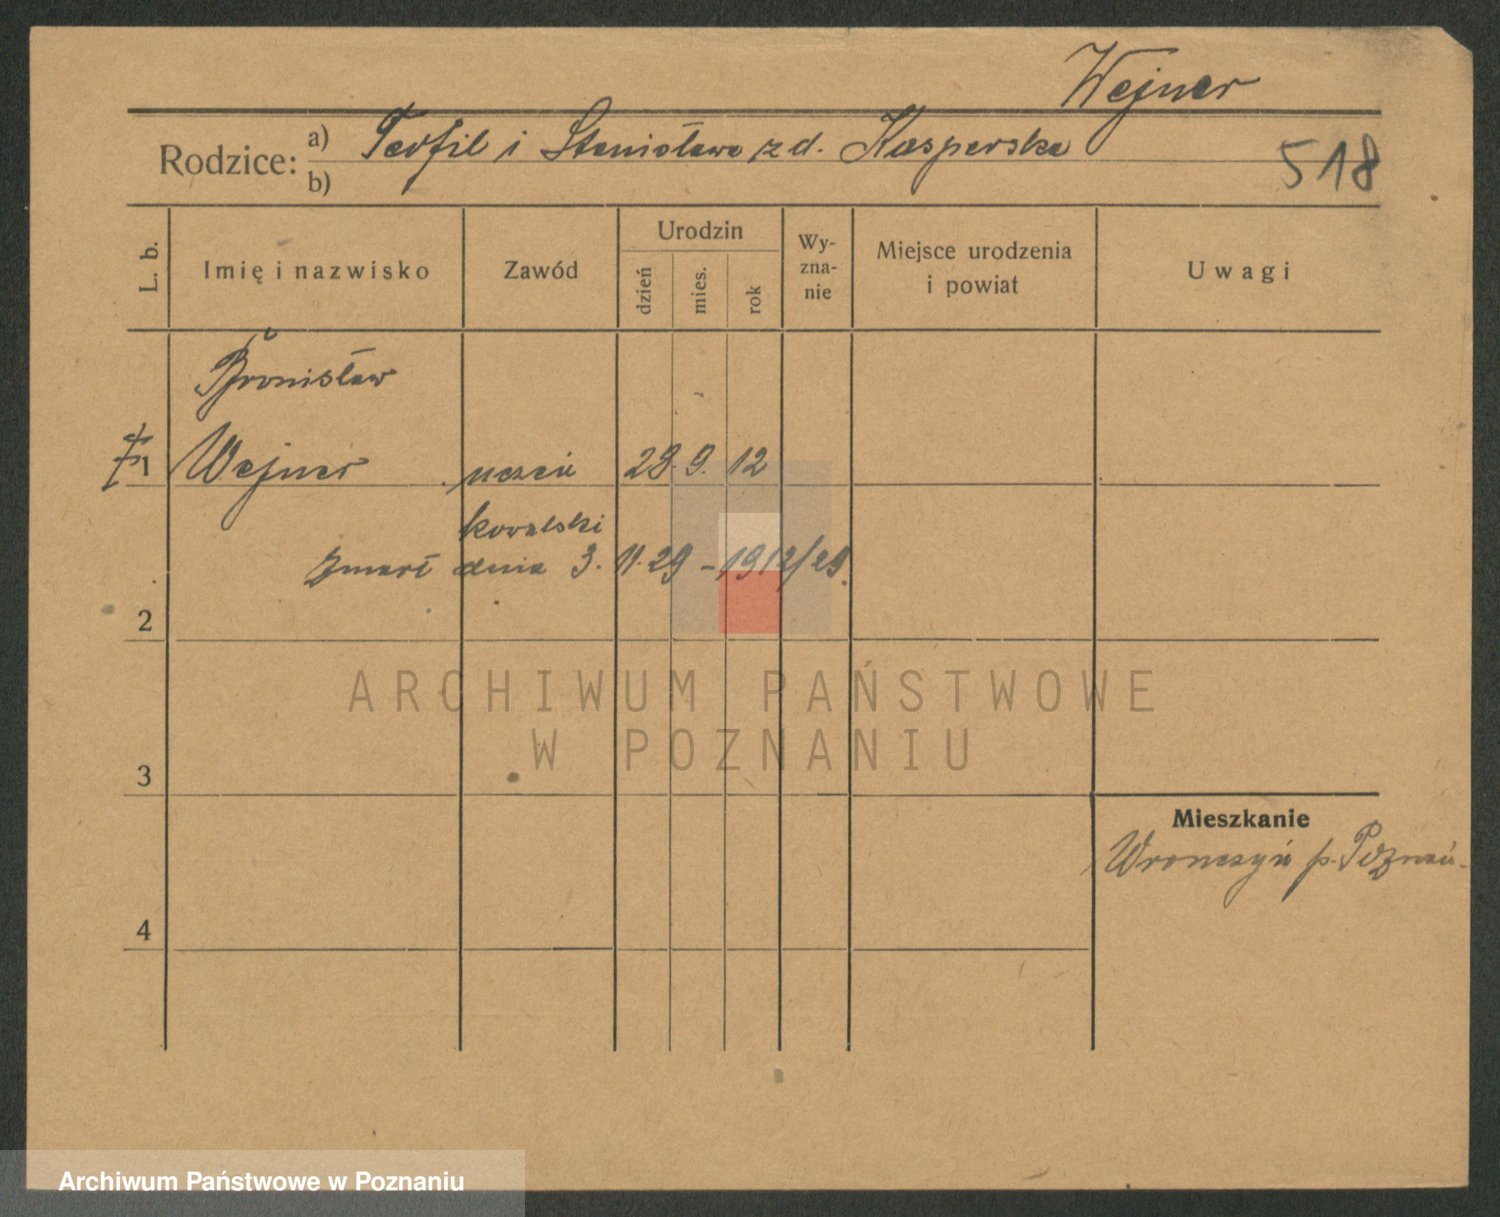 Wejner
Rodzice: a) Teofil i Stanisława z d. Kasperska
b)
518
L. b.
Imię i nazwisko
Zawód
Urodzin
dzień
mies.
rok
Wy-
zna-
nie
Miejsce urodzenia
i powiat
Uwagi
Bronisław
1 Wejner uczeń 28. 9. 12
kowalski
zmarł dnia 3. 11. 29 – 1912/29.
2
ARCHIWUM PAŃSTWOWE
W POZNANIU
3
Mieszkanie
Wronczyn p. Poznań.
4
Archiwum Państwowe w Poznaniu